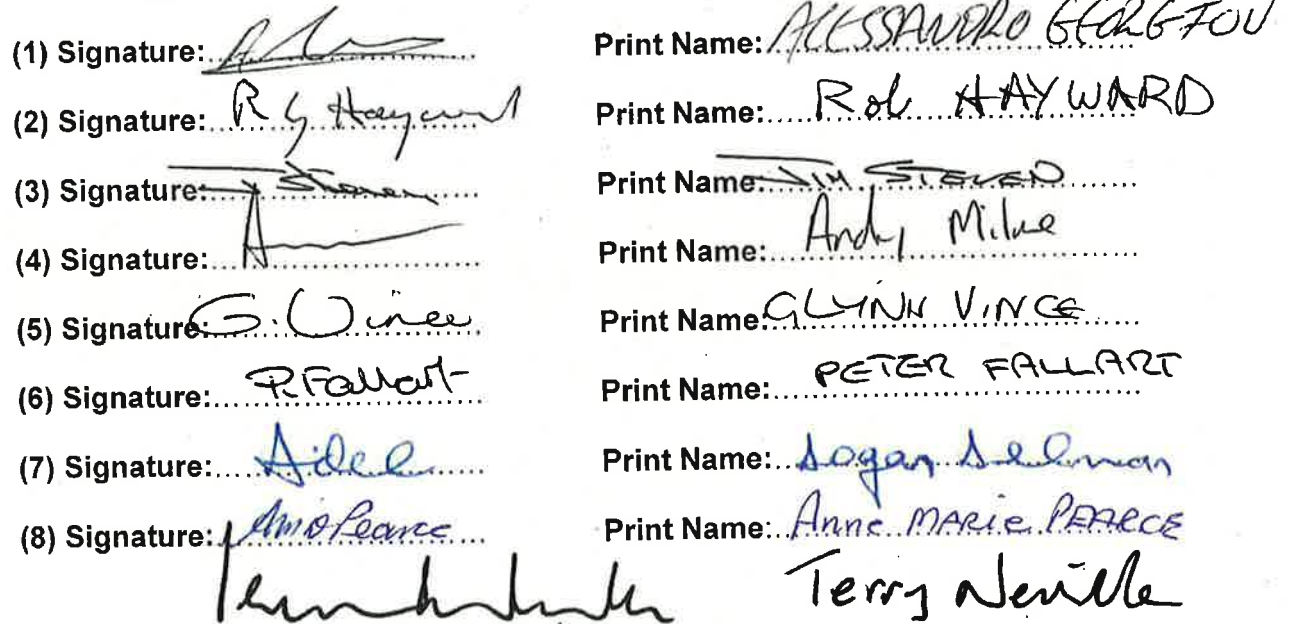 (1) Signature: Print Name: ALESSANDRO GEORGIOU
(2) Signature: R G Hayward Print Name: Rob HAYWARD
(3) Signature: J Steven Print Name: JIM STEVEN
(4) Signature: Print Name: Andy Milne
(5) Signature: G. Vince Print Name: GLYNN VINCE
(6) Signature: P. Fallart Print Name: PETER FALLART
(7) Signature: Print Name: Logan
(8) Signature: Pearce Print Name: Anne MARIE PEARCE
Terry Neville